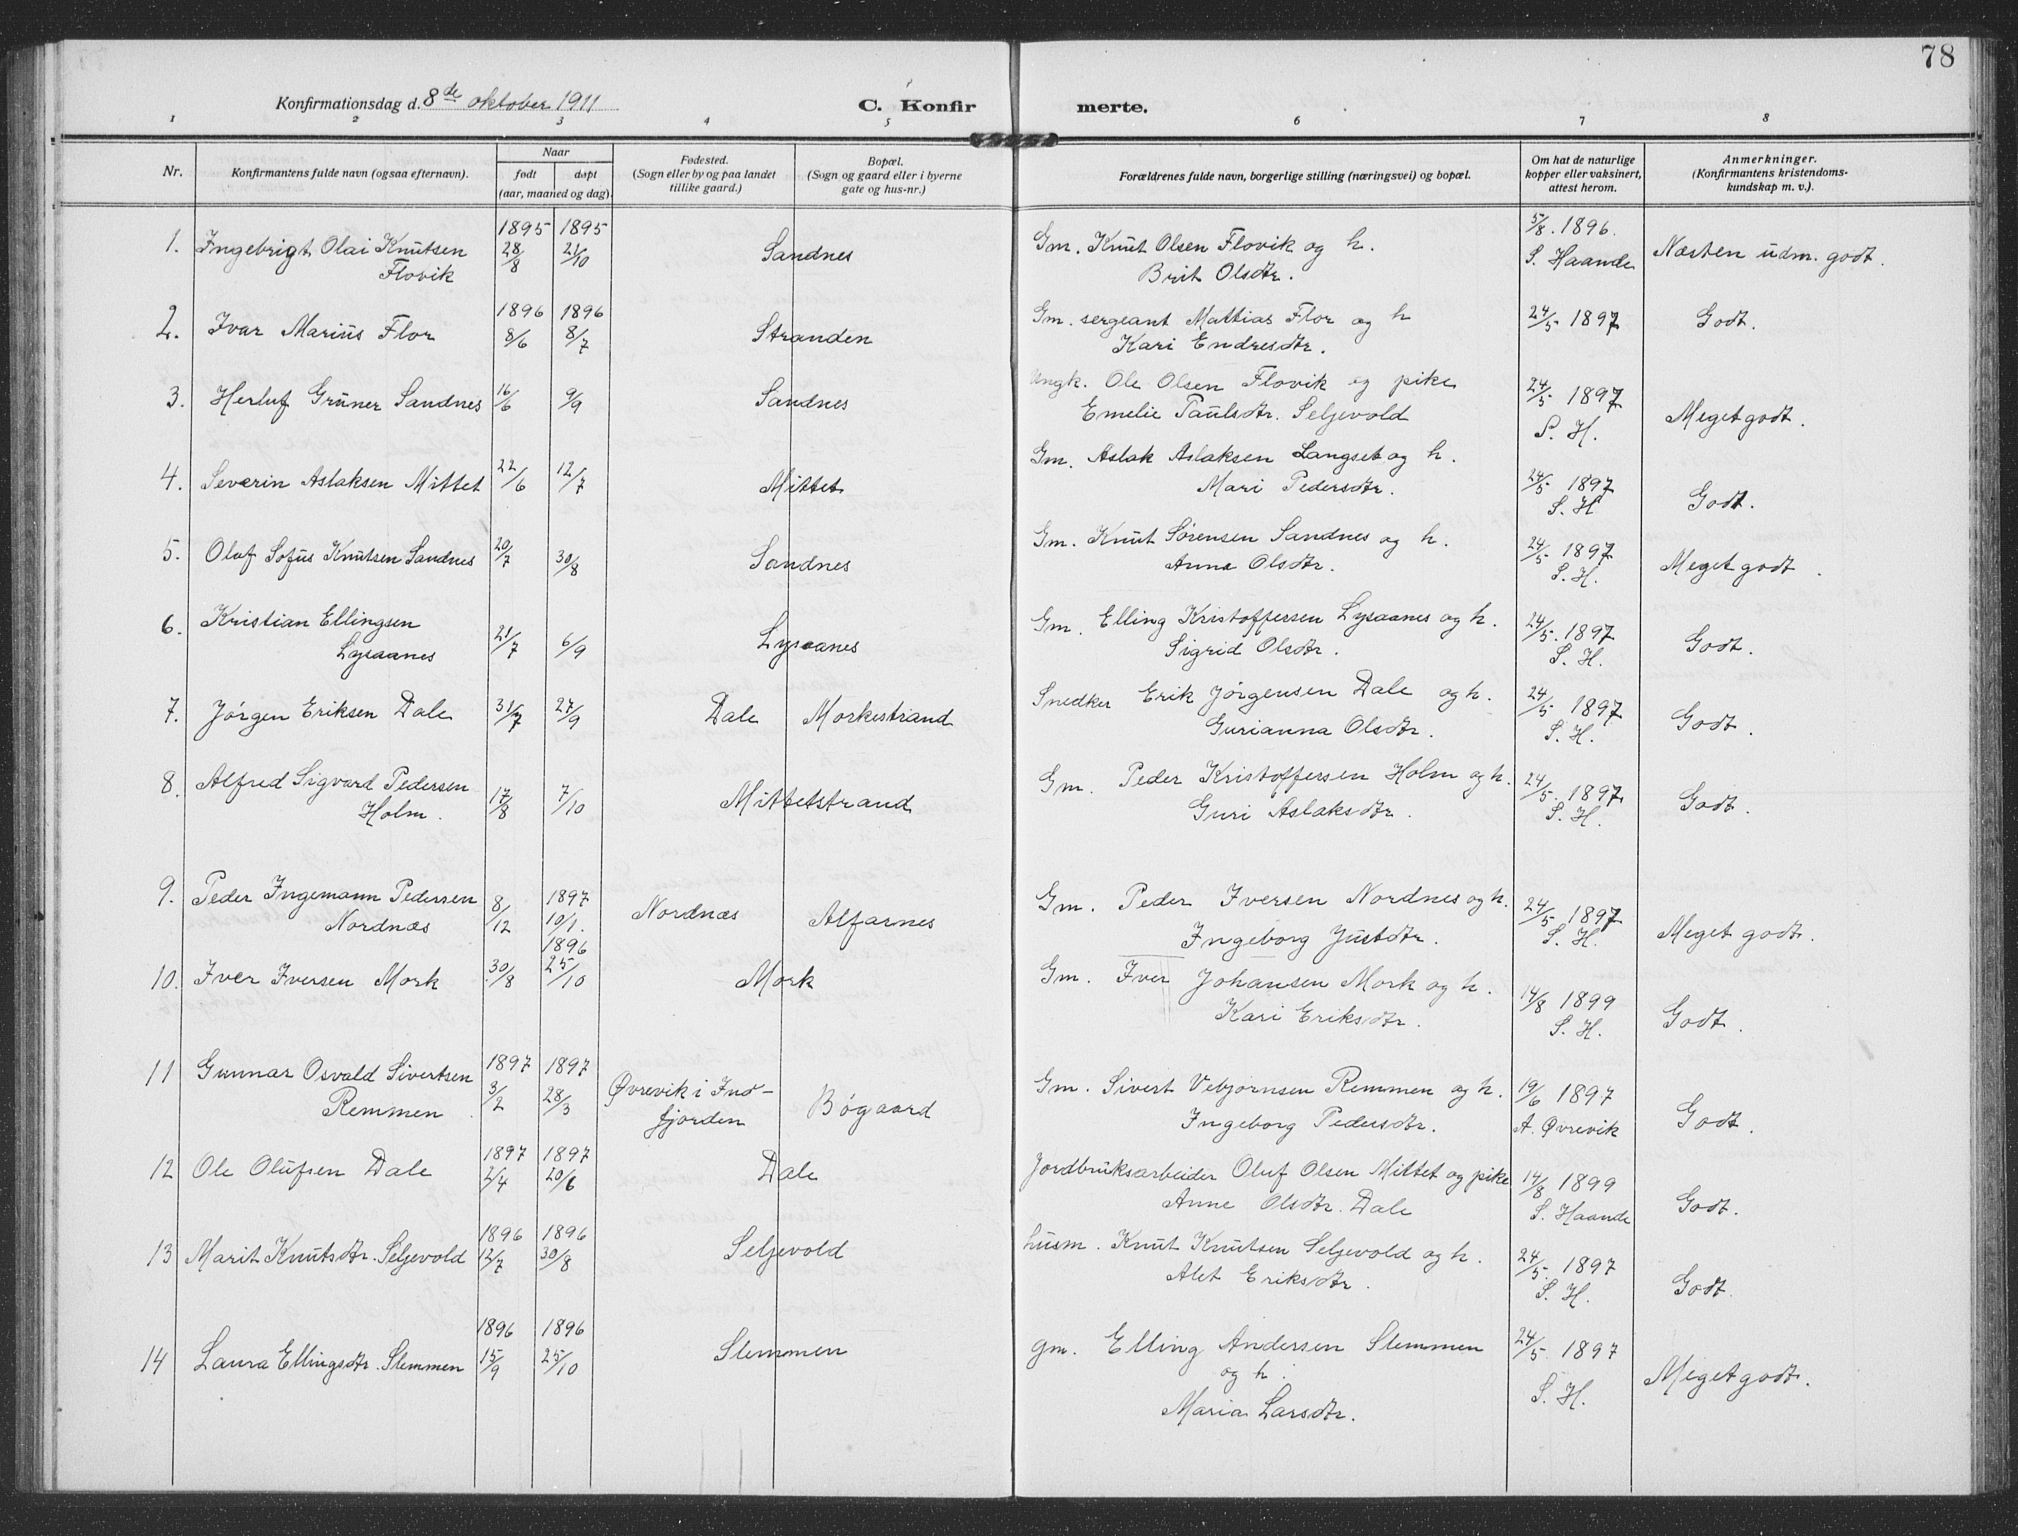 78
Konfirmationsdag d. 8de oktober 1911
C. Konfir merte.
1 2 3 4 5 6 7 8
Nr.
Konfirmantens fulde navn (ogsaa efternavn).
Naar
født døpt
(aar, maaned og dag).
Fødested.
(Sogn eller by og paa landet
tillike gaard.)
Bopæl.
(Sogn og gaard eller i byerne
gate og hus-nr.)
Forældrenes fulde navn, borgerlige stilling (næringsvei) og bopæl.
Om hat de naturlige
kopper eller vaksinert,
attest herom.
Anmerkninger.
(Konfirmantens kristendoms-
kundskap m. v.).
1895 1895 5/8. 1896.
1. Ingebrigt Olai Knutsen 28/8 21/10 Sandnes Gm. Knut Olsen Flovik og h. S. Haande Næsten udm. godt.
Flovik Brit Olsdtr.
1896 1896
2. Ivar Marius Flor 8/6 8/7 Stranden Gm. sergeant Mattias Flor og h 24/5 1897 Godt.
Kari Endresdtr.
3. Herluf Grüner Sandnes 16/6 9/9 Sandnes Ungk. Ole Olsen Flovik og pike 24/5 1897 Meget godt.
Emelie Paulsdtr. Seljevold S. H.
4. Severin Aslaksen Mittet 22/6 12/7 Mittet Gm. Aslak Aslaksen Langset og h. 24/5 1897 Godt.
Mari Pedersdtr. S. H
5. Oluf Sofus Knutsen Sandnes 20/7 30/8 Sandnes Gm. Knut Sørensen Sandnes og h. 24/5 1897 Meget godt.
Anna Olsdtr. S. H.
6. Kristian Ellingsen 21/7 6/9 Lysaanes Gm. Elling Kristoffersen Lysaanes og h. 24/5. 1897 Godt.
Lysaanes Sigrid Olsdtr. S. H.
7. Jørgen Eriksen Dale 31/7 27/9 Dale Morkestrand Snedker Erik Jørgensen Dale og h. 24/5 1897 Godt.
Gurianna Olsdtr. S. H.
8. Alfred Sigvard Pedersen 17/8 7/10 Mittetstrand Gm. Peder Kristoffersen Holm og h. 24/5. 1897 Godt.
Holm. Guri Aslaksdtr. S. H.
9. Peder Ingemann Pedersen 8/12 1897 10/1. Nordnæs Alfarnes Gm. Peder Iversen Nordnes og h. 24/5 1897 Meget godt.
Nordnæs Ingeborg Justdtr. S. H.
1896
10. Iver Iversen Mork 30/8 25/10 Mork Gm. Iver Johansen Mork og h. 14/8 1899 Godt.
Kari Eriksdtr. S. H.
1897 1897
11 Gunnar Osvald Sivertsen 3/2 28/3 Øvrevik i Inn- Bøgaard Gm. Sivert Vebjørnsen Remmen og h. 19/6 1897 Godt.
Remmen fjorden Ingeborg Pedersdtr. A. Øvrevik
1897 1897
12 Ole Olufsen Dale 2/4 20/6 Dale Jordbruksarbeider Oluf Olsen Mittet og pike 14/8 1899 Godt.
Anne Olsdtr. Dale S. Haande
1896 1896
13 Marit Knutsdtr. Seljevold 12/7 30/8 Seljevold husm. Knut Knutsen Seljevold og h. 24/5. 1897 Godt.
Alet Eriksdtr. S. H.
1896 1896
14 Laura Ellingsdtr. Slemmen 15/9 25/10 Slemmen gm. Elling Andersen Slemmen 24/5. 1897 Meget godt.
og h. S. H.
Maria Larsdtr.